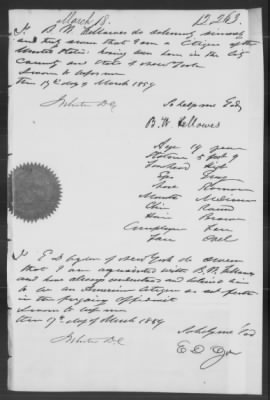 March 18. 12,263.
I B. W. Fellowes do solemnly sincerely
and truly swear that I am a Citizen of the
United States being born here in the City
County and State of New York
Sworn to before me
this 17th day of March 1859
So help me God
B. W. Fellowes
Age 19 years
Stature 5 feet 9
Forehead High
Eyes Gray
Nose Roman
Mouth Medium
Chin Round
Hair Brown
Complexion Fair
Face Oval
I E. D. of New York do swear
that I am acquainted with B. W. Fellowes
and have always understood and believed him
to be an American Citizen as set forth
in the foregoing affidavit
Sworn to before me
this 17th day of March 1859
So help me God
E D